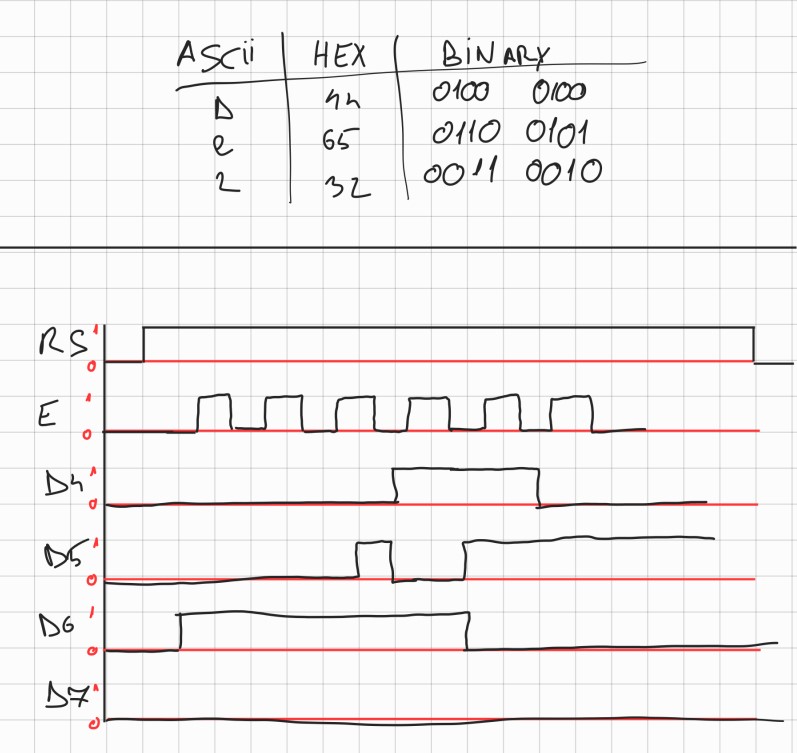 ASCii HEX BiNARY
D 44 0100 0100
e 65 0110 0101
2 32 0011 0010
RS 1
0
E 1
0
D4 1
0
D5 1
0
D6 1
0
D7 1
0